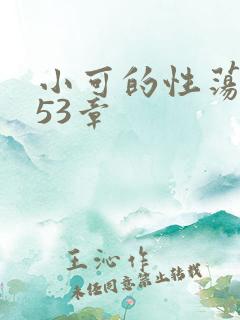 小可的性荡
53章
王沁作
未经同意禁止转载